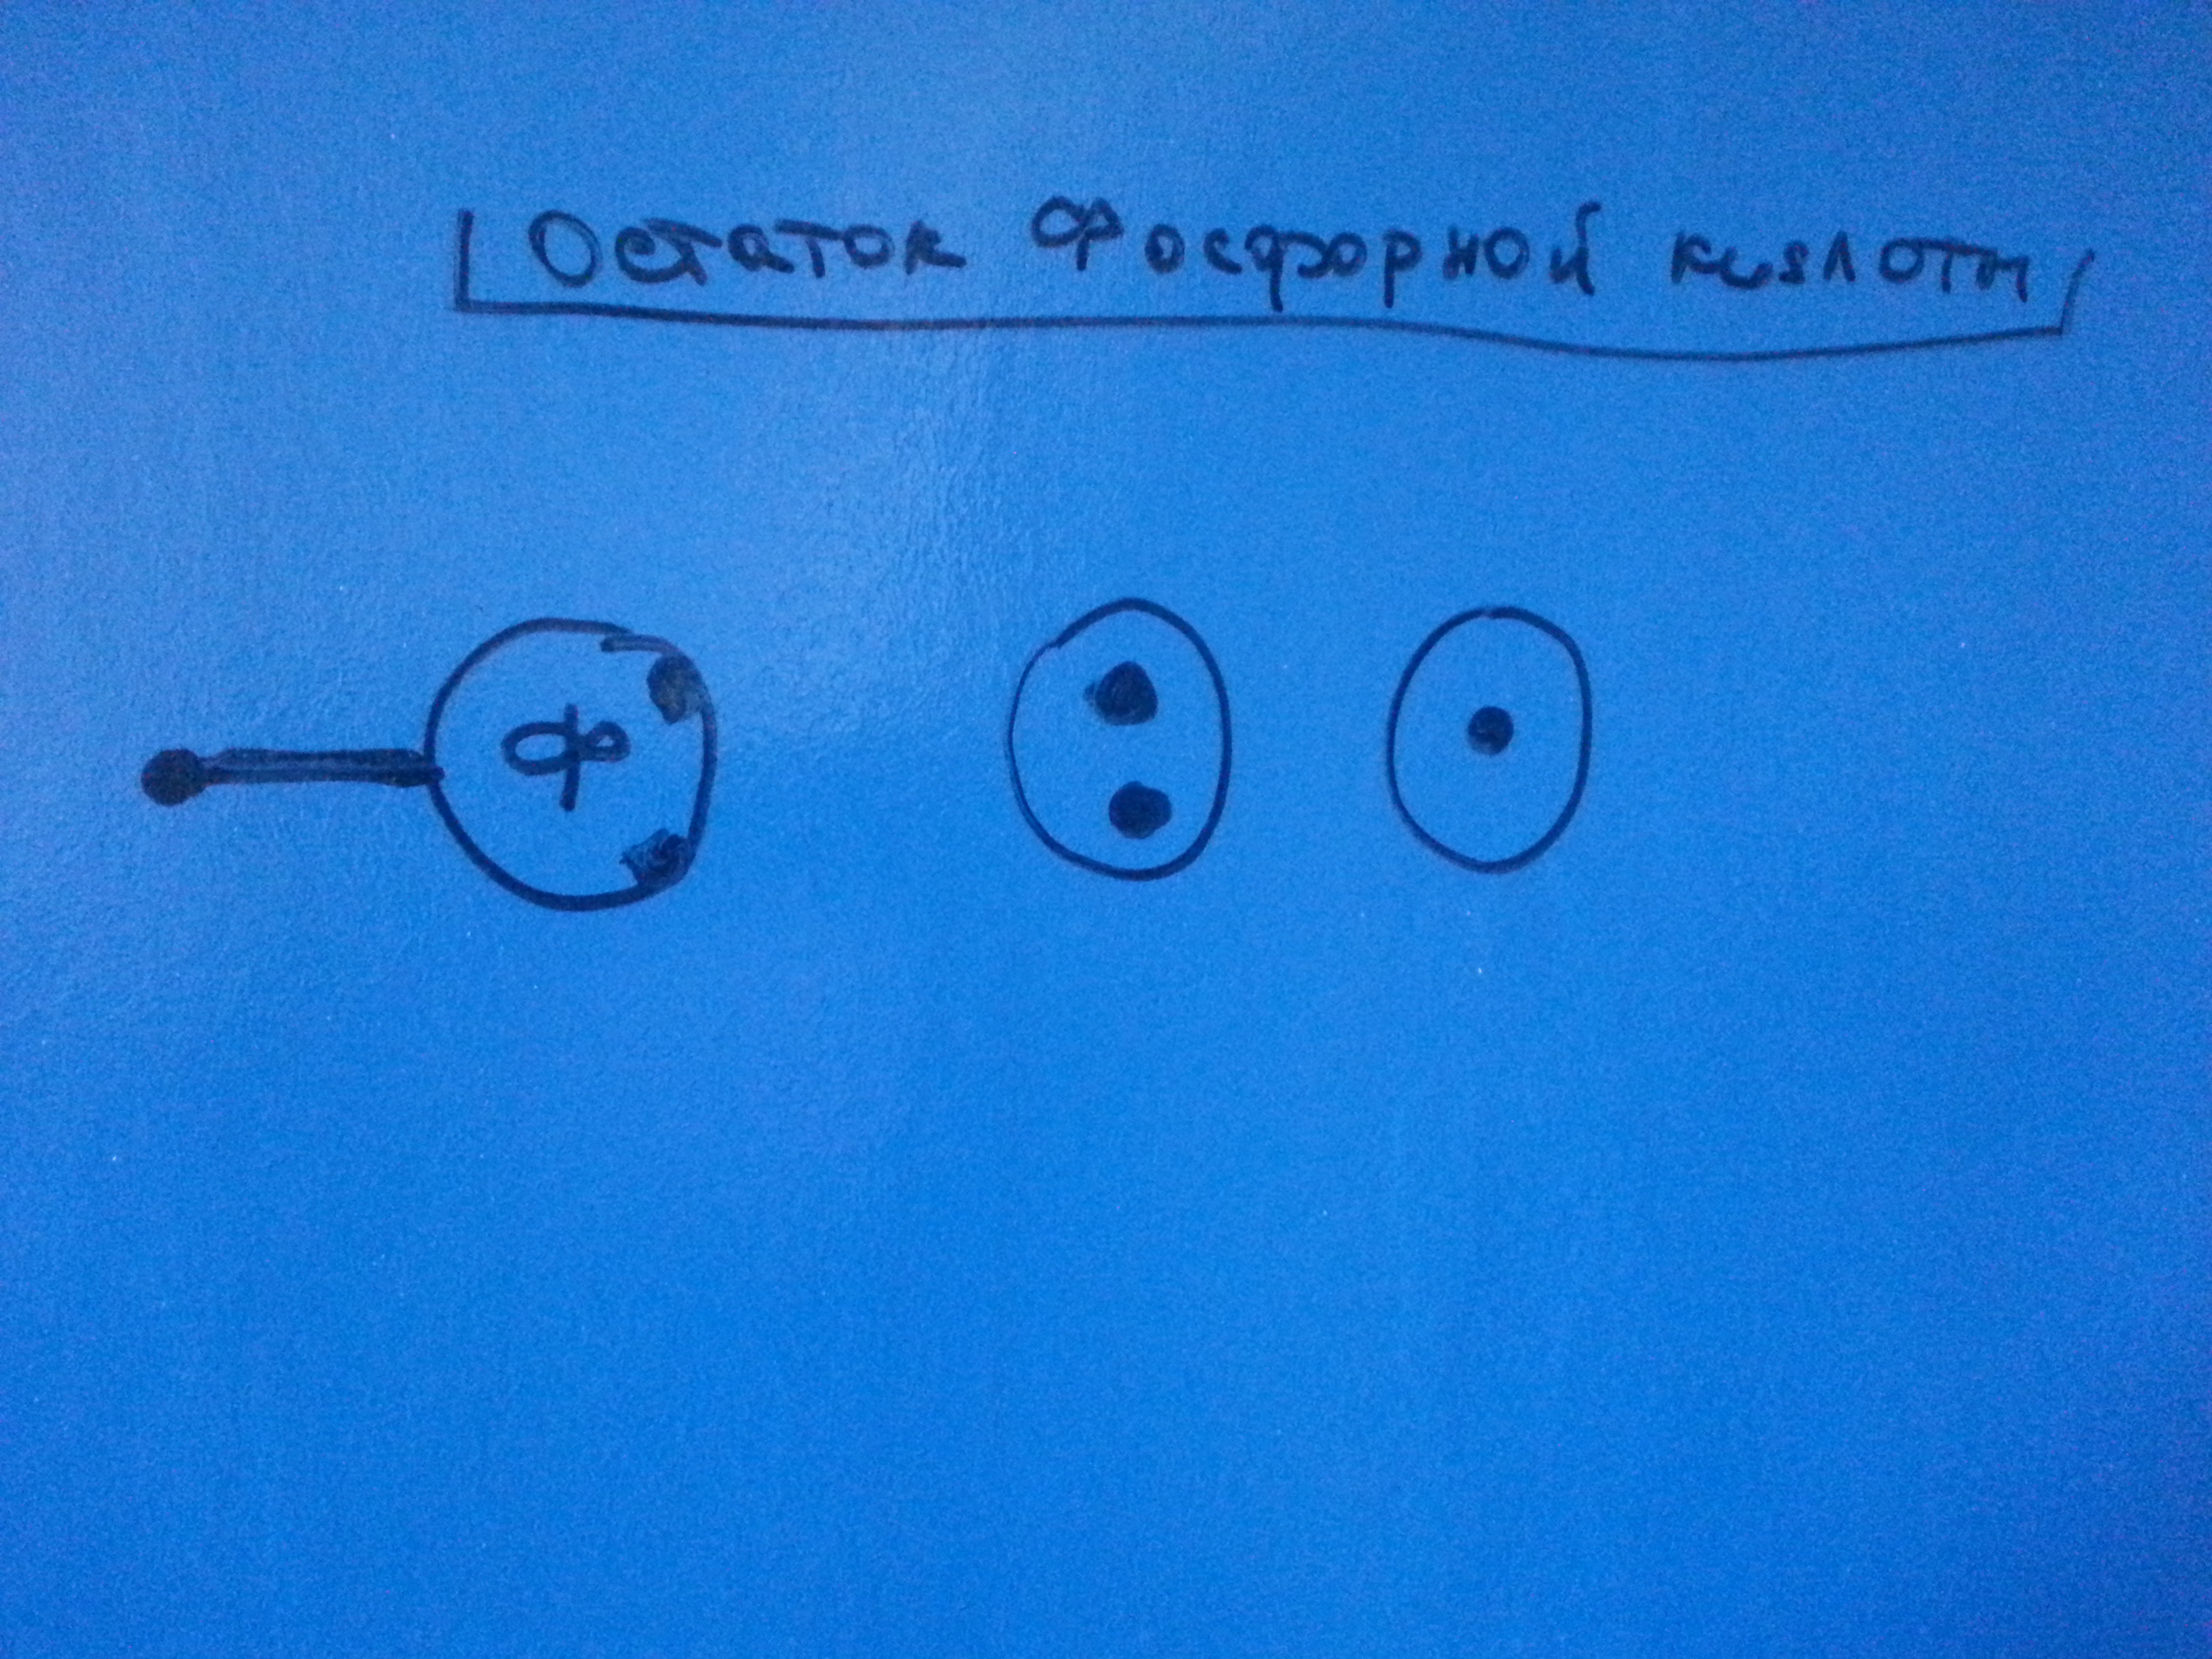 Остаток фосфорной кислоты
Ф